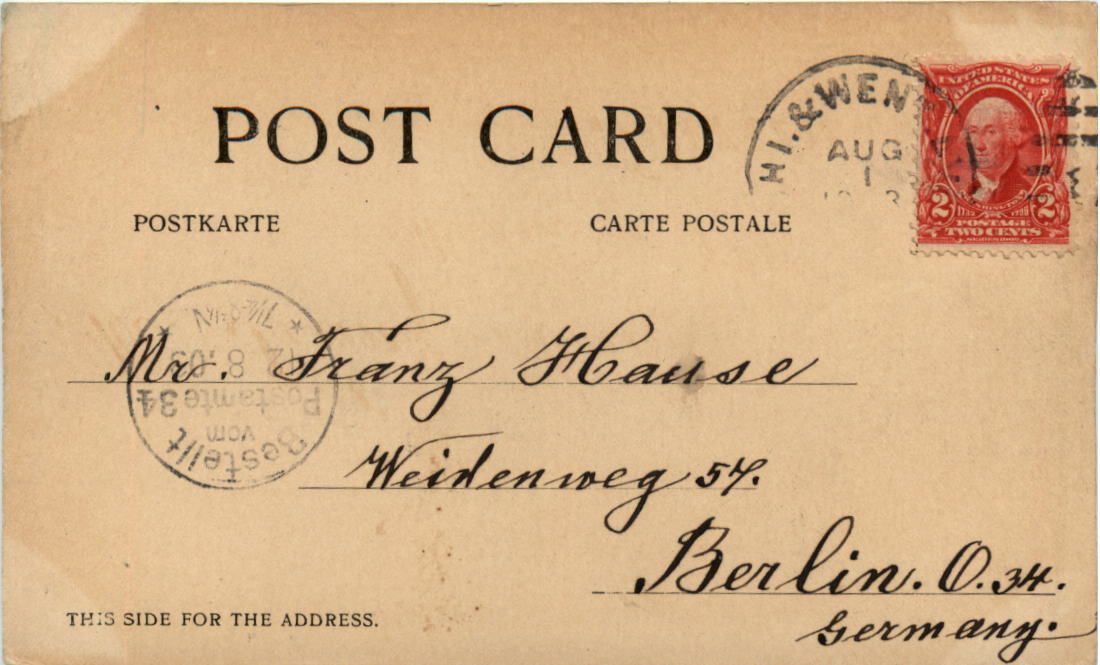 POST CARD
POSTKARTE
CARTE POSTALE
HI. & WEN
AUG
1
UNITED STATES
OF AMERICA
2 2
WASHINGTON
1732 1799
POSTAGE
TWO CENTS
Bestellt
vom
Postamte 34
12 8 03
Mr. Franz Hause
Weidenweg 57.
Berlin. O. 34.
Germany.
THIS SIDE FOR THE ADDRESS.